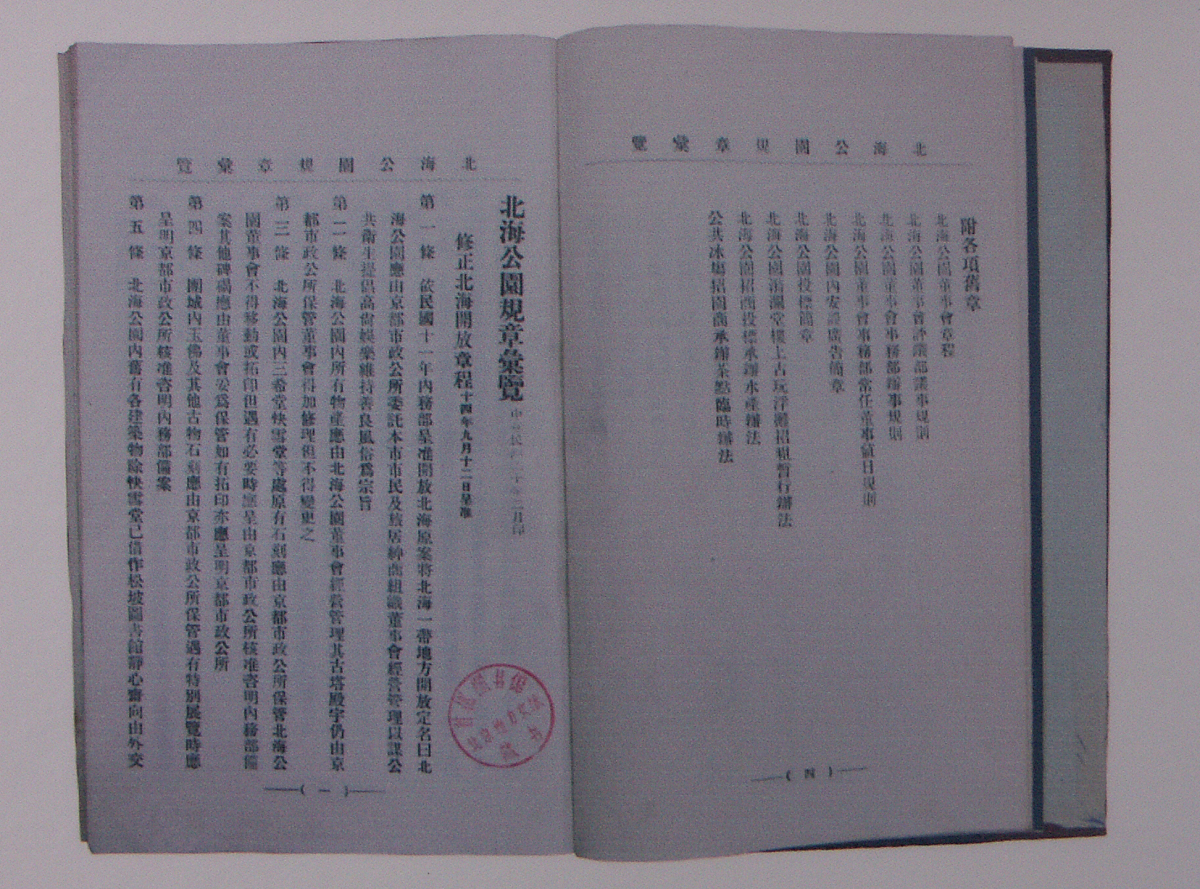 北海公園規章彙覽
附各項舊章
北海公園董事會章程
北海公園董事會評議部議事規則
北海公園董事會事務部辦事規則
北海公園董事會事務部常任董事值日規則
北海公園內安設廣告簡章
北海公園投標簡章
北海公園漪瀾堂樓上古玩浮攤招租暫行辦法
北海公園招商投標承辦水產辦法
公共冰場招園商承辦茶點臨時辦法
(四)
北海公園規章彙覽
北海公園規章彙覽 中華民國二十年二月印
修正北海開放章程 十四年九月十二日呈准
第一條 依民國十一年內務部呈准開放北海原案將北海一帶地方開放定名曰北
海公園應由京都市政公所委託本市市民及旅居紳商組織董事會經營管理以謀公
共衛生提倡高尚娛樂維持善良風俗爲宗旨
第二條 北海公園內所有物產應由北海公園董事會經營管理其古塔殿宇仍由京
都市政公所保管董事會得加修理但不得變更之
第三條 北海公園內三希堂快雪堂等處原有石刻應由京都市政公所保管北海公
園董事會不得移動或拓印但遇有必要時應呈由京都市政公所核准咨明內務部備
案其他碑碣應由董事會妥爲保管如有拓印亦應呈明京都市政公所
第四條 團城內玉佛及其他古物石刻應由京都市政公所保管遇有特別展覽時應
呈明京都市政公所核准咨明內務部備案
第五條 北海公園內舊有各建築物除快雪堂已借作松坡圖書館靜心齋向由外交
(一)